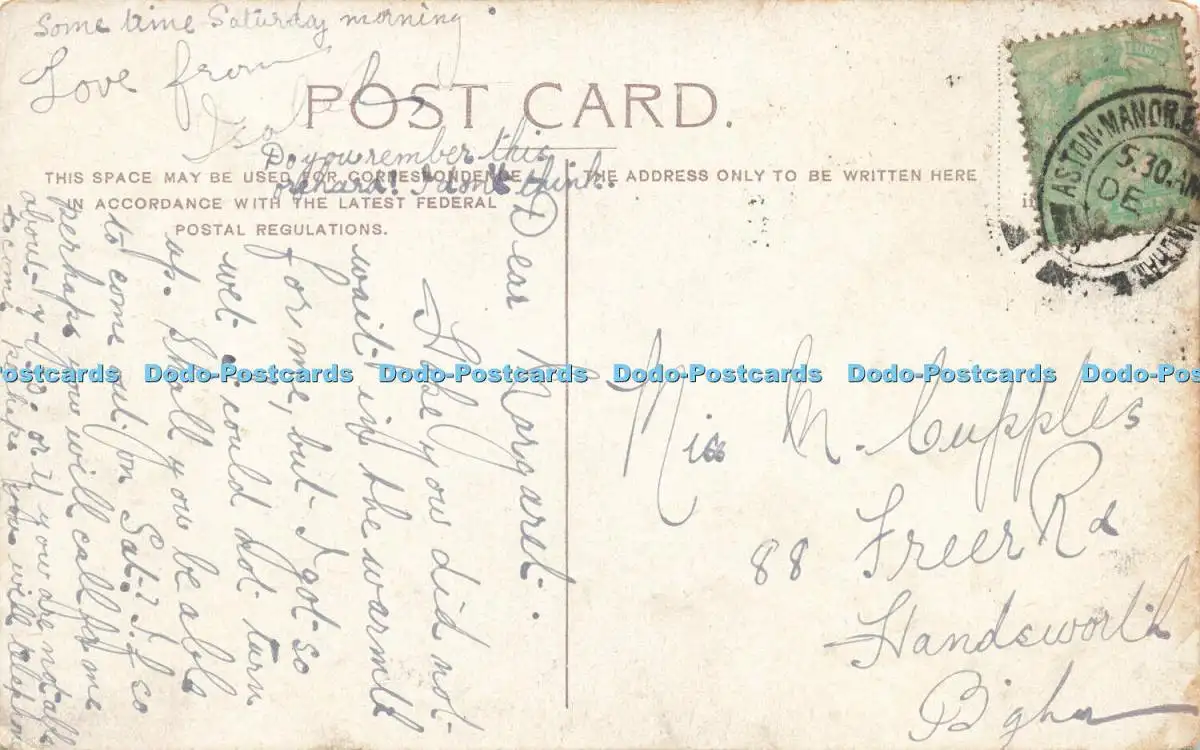 POST CARD.
THIS SPACE MAY BE USED FOR CORRESPONDENCE
IN ACCORDANCE WITH THE LATEST FEDERAL
POSTAL REGULATIONS.
THE ADDRESS ONLY TO BE WRITTEN HERE
Do you rember this
orchard! I don't think.
Dear Margaret.
I hope you did not
wait in the warmth
for me, but I got so
wet I could not turn
up. Shall you be able
to come out on Sat? If so
perhaps you will call for me
about 7
or if you are not able
to come perhaps you will
Some time Saturday morning.
Love from
Miss M. Cupples
88 Freer Rd
Handsworth
B'gham
ASTON MANOR
5.30 AM
DE
Dodo-Postcards Dodo-Postcards Dodo-Postcards Dodo-Postcards Dodo-Postcards